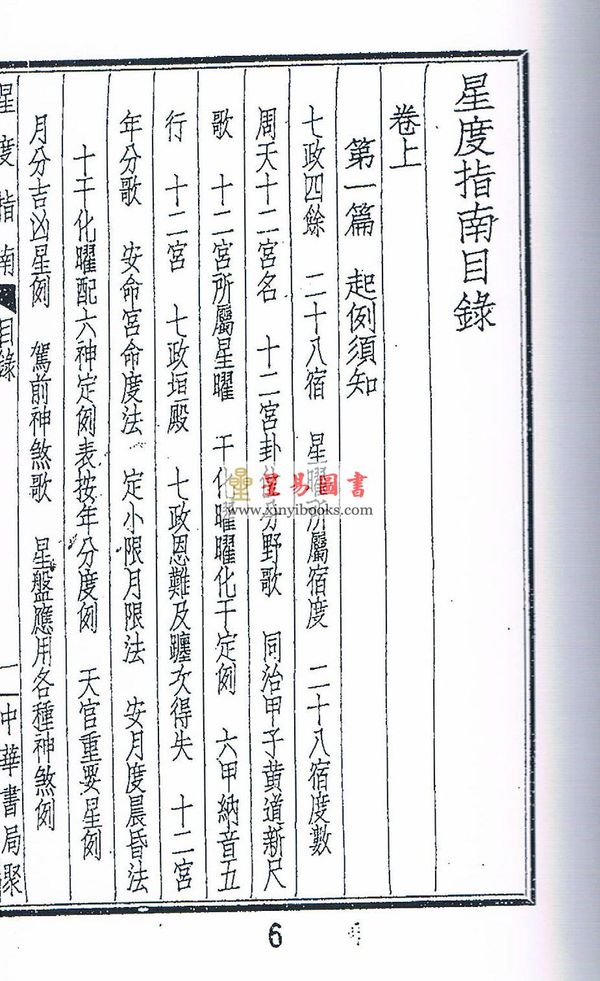 星度指南目錄
卷上
第一篇 起例須知
七政四餘 二十八宿 星曜所屬宿度 二十八宿度數
周天十二宮名 十二宮卦位分野歌 同治甲子黃道新尺
歌 十二宮所屬星曜 干化曜曜化干定例 六甲納音五
行 十二宮 七政垣殿 七政恩難及躔次得失 十二宮
年分歌 安命宮命度法 定小限月限法 安月度晨昏法
十干化曜配六神定例表按年分度例 天官重要星例
月分吉凶星例 駕前神煞歌 星盤應用各種神煞例
星度指南 目錄 一 中華書局聚
星易圖書
www.xinyibooks.com
6